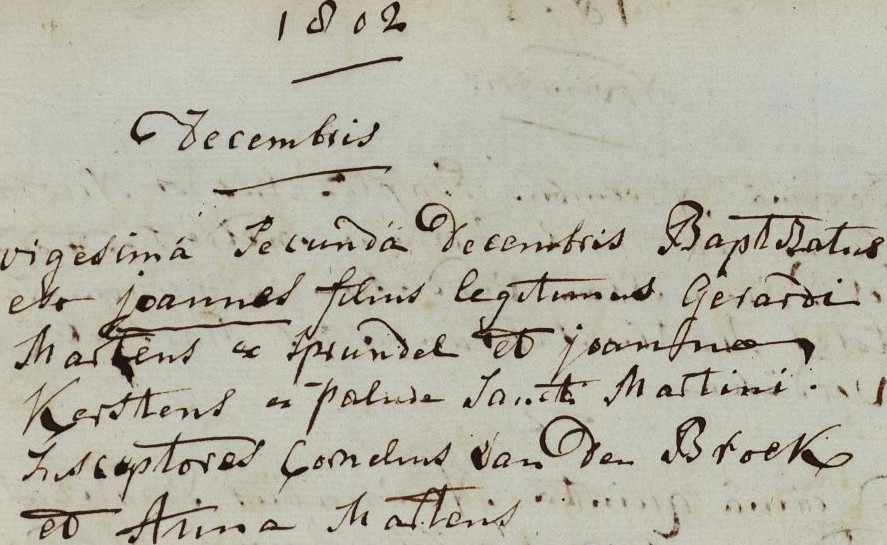 1802
Decembris
vigesima Secunda Decembris Baptizatus
est joannes filius legitimus Gerardi
Martens ex Sprundel et joannae
Kerstens ex palude Sancti Martini.
Susceptores Cornelius van den Broek
et Anna Martens